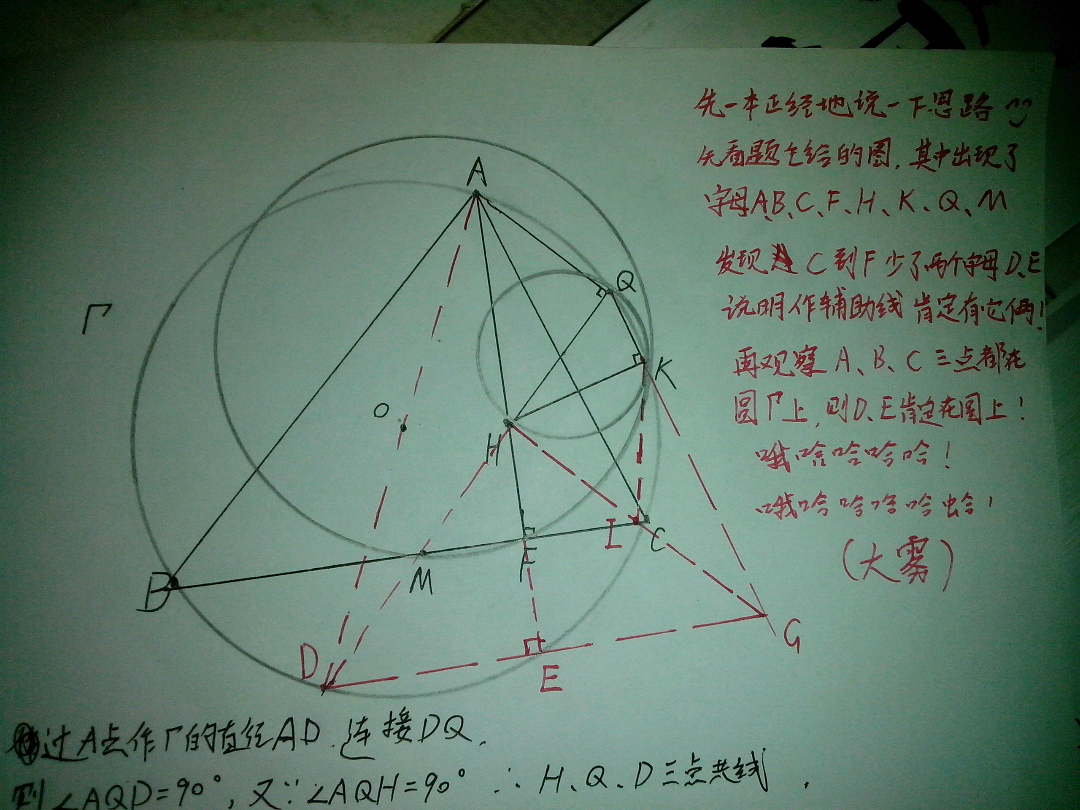 先一本正经地说一下思路
先看题它给的图,其中出现了
字母A、B、C、F、H、K、Q、M
发现从C到F少了两个字母D、E
说明作辅助线肯定有它俩!
再观察A、B、C三点都在
圆Γ上,则D、E肯定在圆上!
哦哈哈哈哈!
哦哈哈哈哈蛤!
(大雾)
A
Q
Γ
K
O
H
I
C
F
M
B
G
D
E
过A点作Γ的直径AD.连接DQ.
则∠AQD=90°,又∵∠AQH=90°∴H、Q、D三点共线.